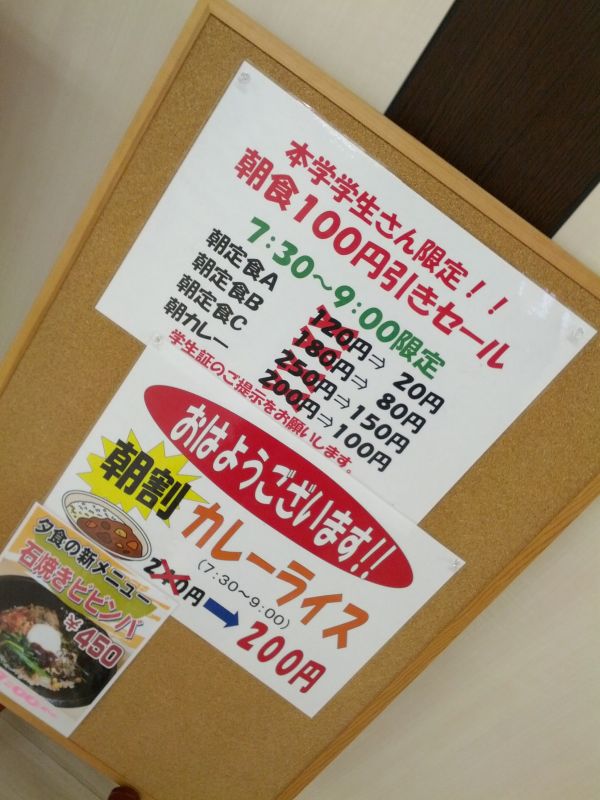 本学学生さん限定！！
朝食100円引きセール
7:30～9:00限定
朝定食A 120円⇒ 20円
朝定食B 180円⇒ 80円
朝定食C 250円⇒150円
朝カレー 200円⇒100円
学生証のご提示をお願いします。
おはようございます!!
朝割
カレーライス
(7:30～9:00)
円
200円
夕食の新メニュー
石焼きビビンバ
￥450